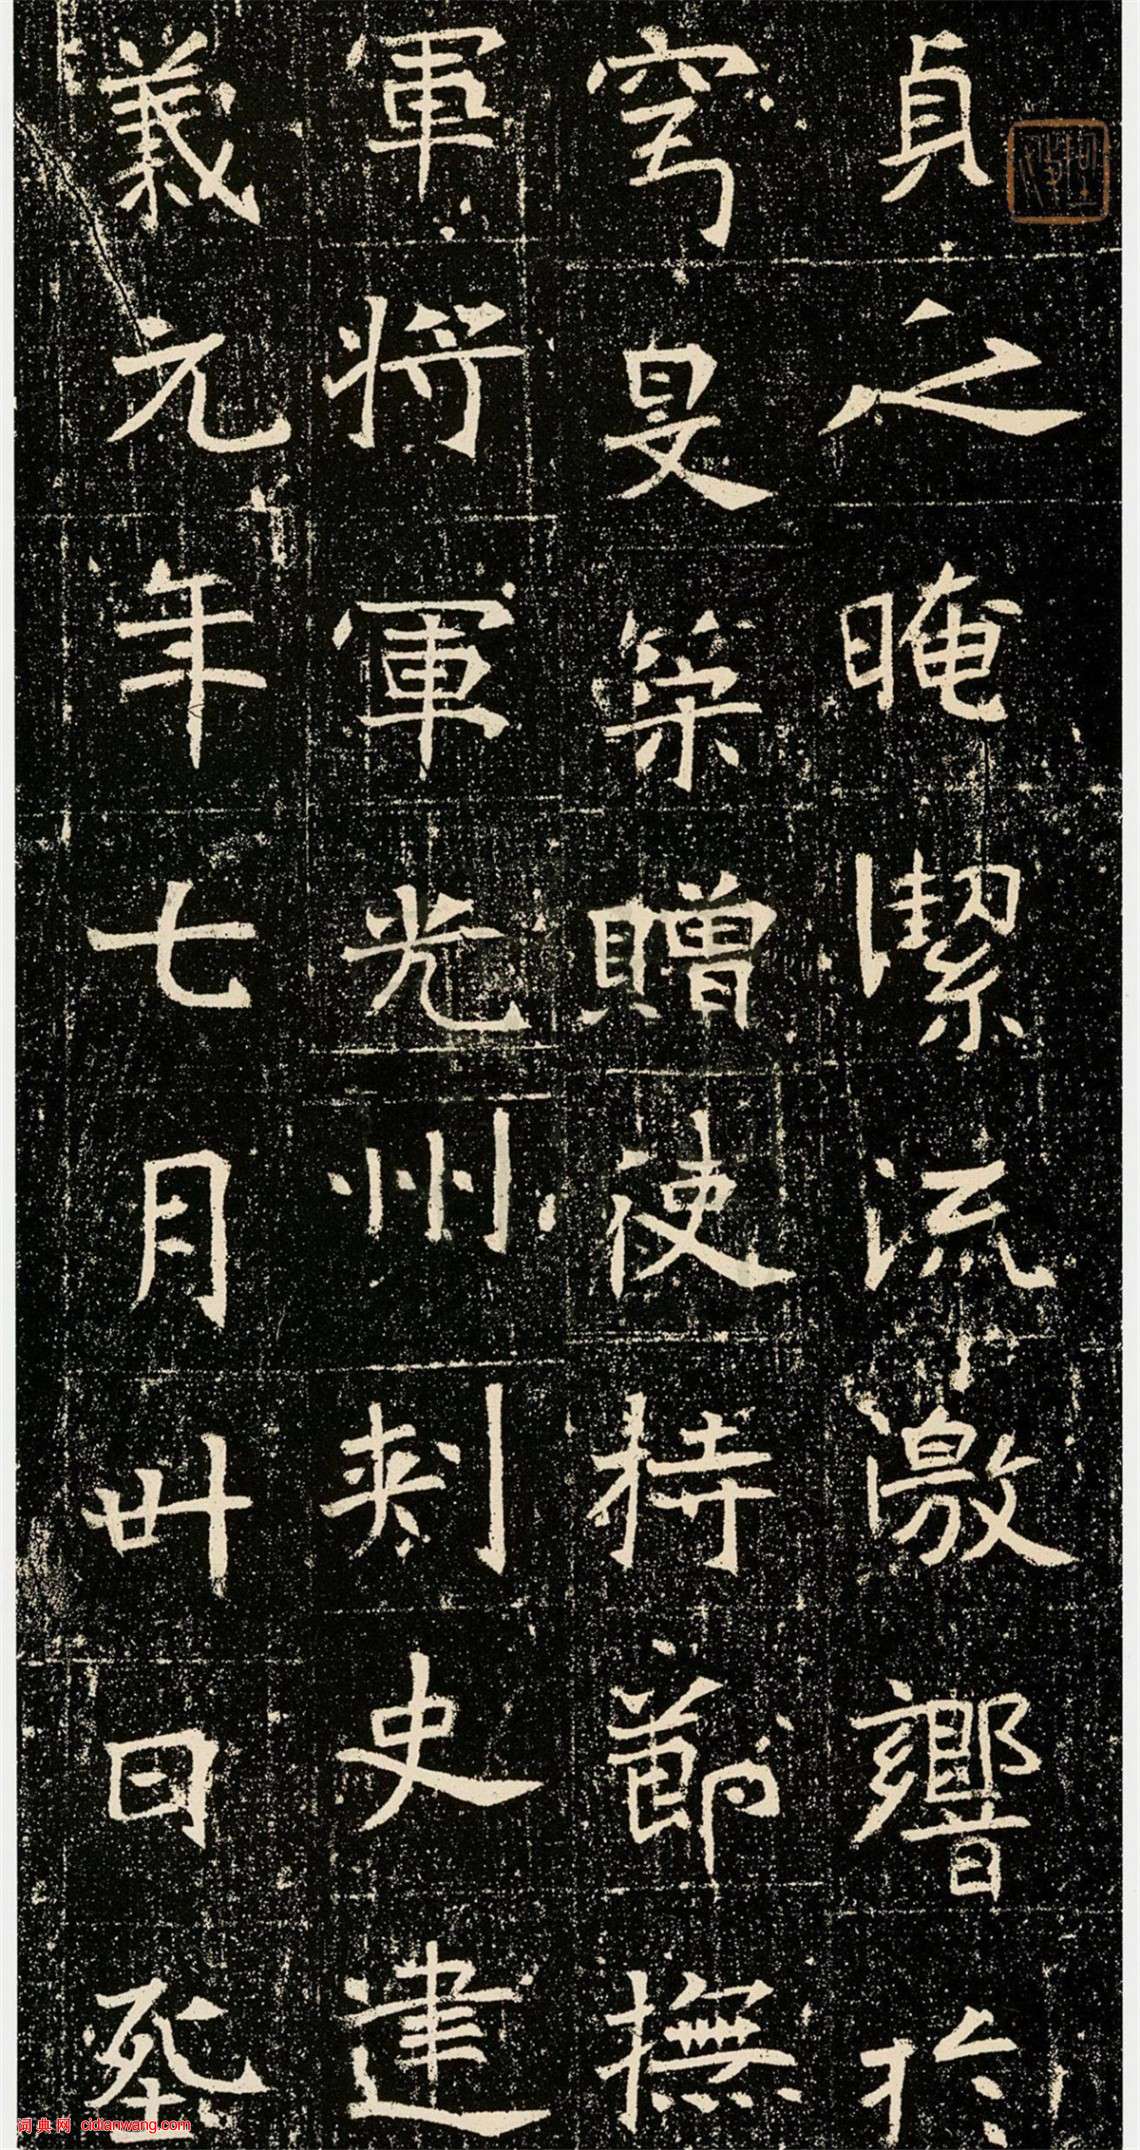 貞之晻潔流激響於
穹旻策贈使持節撫
軍將軍光州刺史建
義元年七月卅日
词典网 cidianwang.com